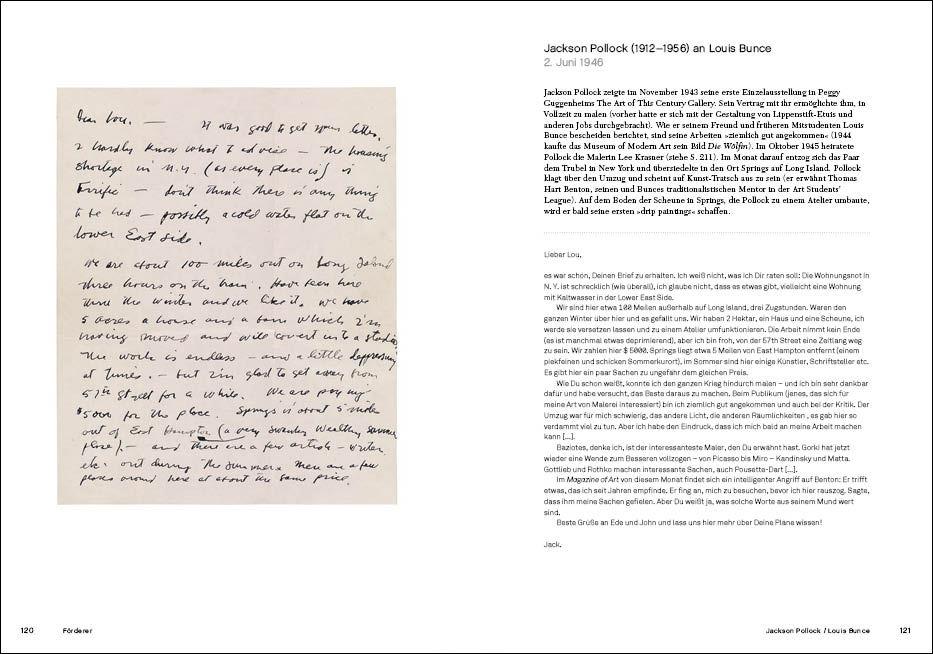 Dear Lou. — It was good to get your letter.
I hardly know what to advice — The housing
shortage in N.Y. (as every place is) is
terrific — don't think there is any thing
to be had — possibly a cold water flat on the
lower East side.
We are about 100 miles out on Long Island
three hours on the train. Have been here
thru the winter and we like it. We have
5 acres a house and a barn which I'm
having moved and will covert into a studio.
The work is endless — and a little depressing
at times. — but I'm glad to get away from
57th street for a while. We are paying
$5000 for the place. Springs is about 5 miles
out of East Hampton (a very swanky wealthy summer
place) — and there are a few artists — writers
etc. out during the summers there are a few
places around here at about the same price.
120
Förderer
Jackson Pollock (1912–1956) an Louis Bunce
2. Juni 1946
Jackson Pollock zeigte im November 1943 seine erste Einzelausstellung in Peggy
Guggenheims The Art of This Century Gallery. Sein Vertrag mit ihr ermöglichte ihm, in
Vollzeit zu malen (vorher hatte er sich mit der Gestaltung von Lippenstift-Etuis und
anderen Jobs durchgebracht). Wie er seinem Freund und früheren Mitstudenten Louis
Bunce bescheiden berichtet, sind seine Arbeiten »ziemlich gut angekommen« (1944
kaufte das Museum of Modern Art sein Bild Die Wölfin). Im Oktober 1945 heiratete
Pollock die Malerin Lee Krasner (siehe S. 211). Im Monat darauf entzog sich das Paar
dem Trubel in New York und übersiedelte in den Ort Springs auf Long Island. Pollock
klagt über den Umzug und scheint auf Kunst-Tratsch aus zu sein (er erwähnt Thomas
Hart Benton, seinen und Bunces traditionalistischen Mentor in der Art Students'
League). Auf dem Boden der Scheune in Springs, die Pollock zu einem Atelier umbaute,
wird er bald seine ersten »drip paintings« schaffen.
Lieber Lou,
es war schön, Deinen Brief zu erhalten. Ich weiß nicht, was ich Dir raten soll: Die Wohnungsnot in
N. Y. ist schrecklich (wie überall), ich glaube nicht, dass es etwas gibt, vielleicht eine Wohnung
mit Kaltwasser in der Lower East Side.
Wir sind hier etwa 100 Meilen außerhalb auf Long Island, drei Zugstunden. Waren den
ganzen Winter über hier und es gefällt uns. Wir haben 2 Hektar, ein Haus und eine Scheune, ich
werde sie versetzen lassen und zu einem Atelier umfunktionieren. Die Arbeit nimmt kein Ende
(es ist manchmal etwas deprimierend), aber ich bin froh, von der 57th Street eine Zeitlang weg
zu sein. Wir zahlen hier $ 5000. Springs liegt etwa 5 Meilen von East Hampton entfernt (einem
piekfeinen und schicken Sommerkurort), im Sommer sind hier einige Künstler, Schriftsteller etc.
Es gibt hier ein paar Sachen zu ungefähr dem gleichen Preis.
Wie Du schon weißt, konnte ich den ganzen Krieg hindurch malen – und ich bin sehr dankbar
dafür und habe versucht, das Beste daraus zu machen. Beim Publikum (jenes, das sich für
meine Art von Malerei interessiert) bin ich ziemlich gut angekommen und auch bei der Kritik. Der
Umzug war für mich schwierig, das andere Licht, die anderen Räumlichkeiten , es gab hier so
verdammt viel zu tun. Aber ich habe den Eindruck, dass ich mich bald an meine Arbeit machen
kann [...].
Baziotes, denke ich, ist der interessanteste Maler, den Du erwähnt hast. Gorki hat jetzt
wieder eine Wende zum Besseren vollzogen – von Picasso bis Miro – Kandinsky und Matta.
Gottlieb und Rothko machen interessante Sachen, auch Pousette-Dart [...].
Im Magazine of Art von diesem Monat findet sich ein intelligenter Angriff auf Benton: Er trifft
etwas, das ich seit Jahren empfinde. Er fing an, mich zu besuchen, bevor ich hier rauszog. Sagte,
dass ihm meine Sachen gefielen. Aber Du weißt ja, was solche Worte aus seinem Mund wert
sind.
Beste Grüße an Ede und John und lass uns hier mehr über Deine Plane wissen!
Jack.
Jackson Pollock / Louis Bunce
121